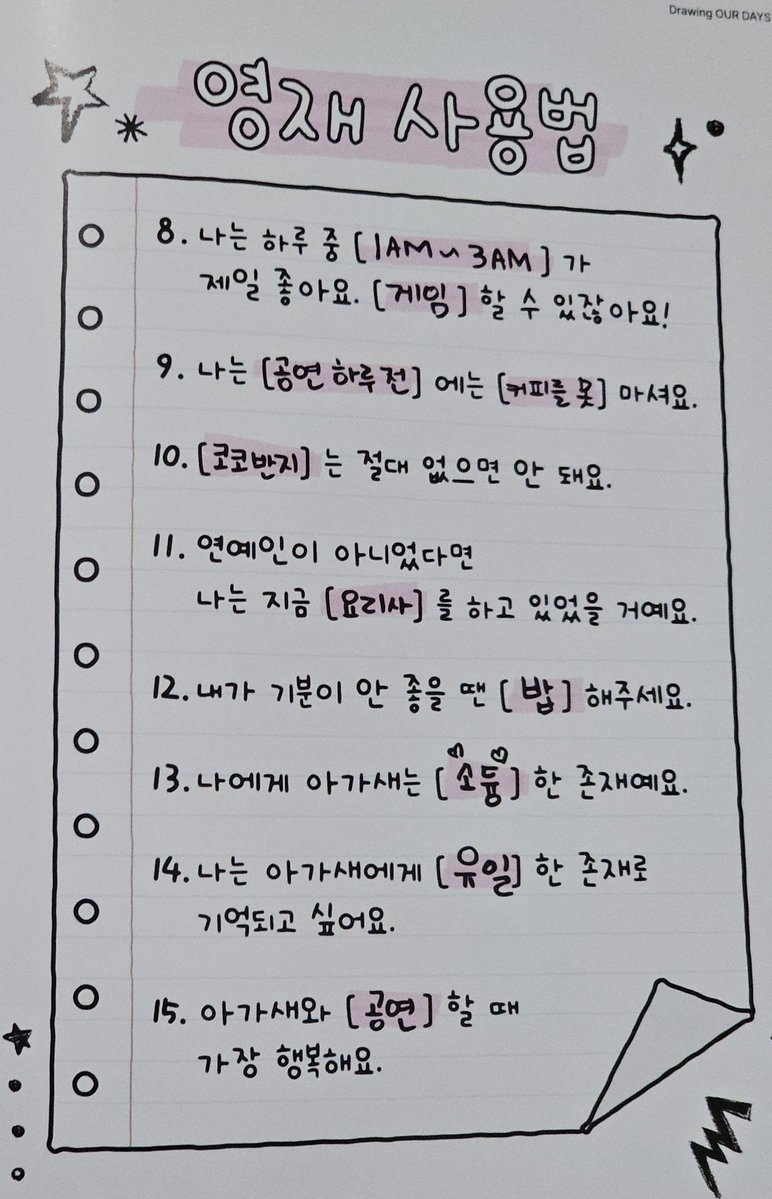 Drawing OUR DAYS
영재 사용법
8. 나는 하루 중 [1AM~3AM] 가
제일 좋아요. [게임] 할 수 있잖아요!
9. 나는 [공연 하루 전] 에는 [커피를 못] 마셔요.
10. [코코반지] 는 절대 없으면 안 돼요.
11. 연예인이 아니었다면
나는 지금 [요리사] 를 하고 있었을 거예요.
12. 내가 기분이 안 좋을 땐 [밥] 해주세요.
13. 나에게 아가새는 [소듕] 한 존재예요.
14. 나는 아가새에게 [유일] 한 존재로
기억되고 싶어요.
15. 아가새와 [공연] 할 때
가장 행복해요.